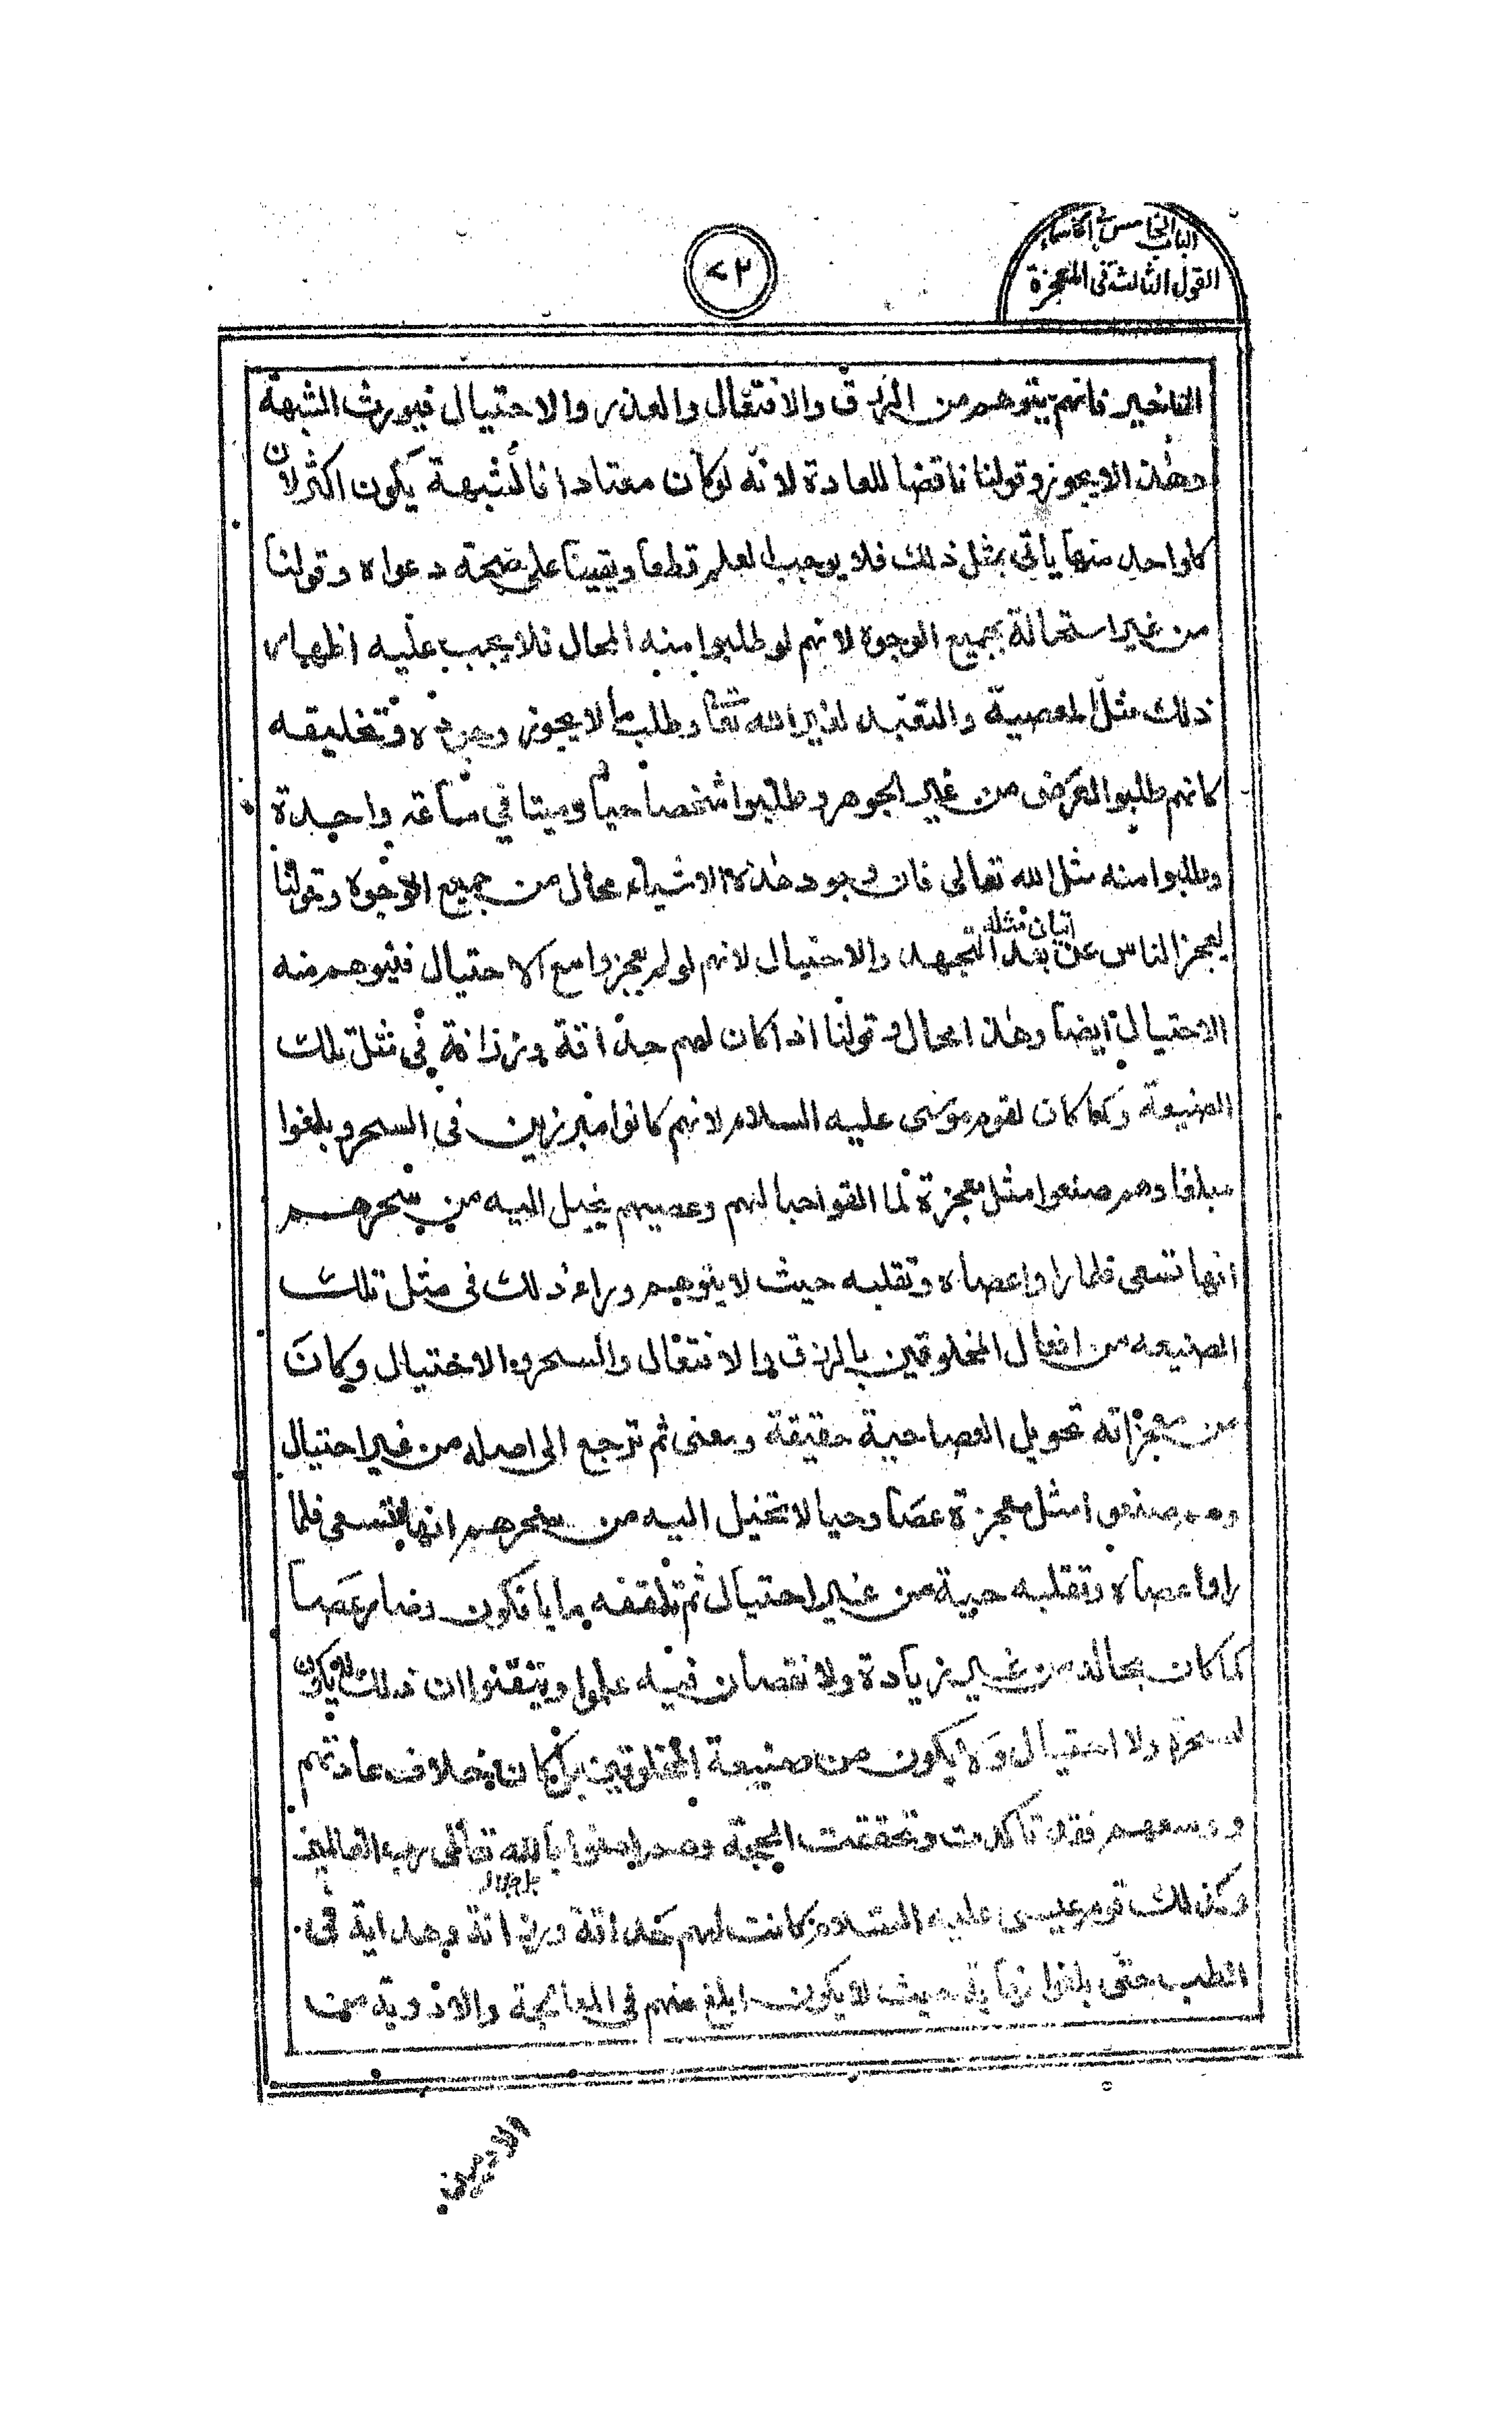 الباب الخامس
القول الثالث فى المعجزة
٧٢
التاخير فانهم يتوهم من الزرق والافتعال والعذر والاحتيال فيورث الشبهة
وهذا لا يجوز وقولنا ناقضا للعادة لانه لو كان معتادا فالشبهة يكون اكثر لان
كل واحد منها ياتى بمثل ذلك فلا يوجب العلم قطعا ويقينا على صحة دعواه وقولنا
من غير استحالة بجميع الوجوه لانهم لو طلبوا منه المحال فلا يجب عليه اظهار
ذلك مثل المعصية والتعبد لغير الله تعا وطلب ما لا يجوز وتخليقه
كانهم طلبوا العرض من غير الجوهر وطلبوا شخصا حيا وميتا في ساعة واحدة
وطلبوا منه مثل الله تعالى فان وجود هذه الاشياء محال من جميع الوجوه وقولنا
يعجز الناس عن اتيان مثله بعد التجهد والاحتيال لانهم لو لم يعجزوا مع الاحتيال فيتوهم منه
الاحتيال ايضا وهذا محال وقولنا اذا كان لهم حذاقة ورزانة في مثل تلك
الصنيعة وكما كان لقوم موسى عليه السلام لانهم كانوا مبرزين فى السحر وبلغوا
مبلغا وهم صنعوا مثل معجزة لما القوا حبالهم وعصيهم يخيل اليه من سحرهم
انها تسعى فلما راوا عصاه وتقلبه حيث لا يتوهم وراء ذلك فى مثل تلك
الصنيعه من افعال المخلوقين بالزرق والافتعال والسحر والاحتيال وكان
من معجزاته تحويل العصا حية حقيقة ومعنى ثم ترجع الى اصله من غير احتيال
وهم صنعوا مثل معجزة عصا وحبالا تخيل اليه من سحرهم انها تسعى فلما
راوا عصاه وتقلبه حية من غير احتيال ثم تلقفه ما يافكون وصار عصا
كما كان بحاله من غير زيادة ولا نقصان فيه علموا وتيقنوا ان ذلك لا يكون
لسحرة ولا احتيال ولا يكون من صنيعة المخلوقين بل كان بخلاف عادتهم
ووسعهم فقد تاكدت وتحققت الحجة وهم امنوا بالله تعالى رب العالمين
وكذلك قوم عيسى عليه السلام كانت لهم حذاقة ورزانة وهداية فى
الطب حتى بلغوا نهاية حيث لا يكون ابلغ منهم فى المعالجة والادوية من